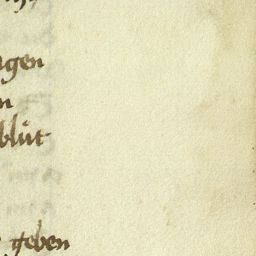 agen
n
blůt
geben